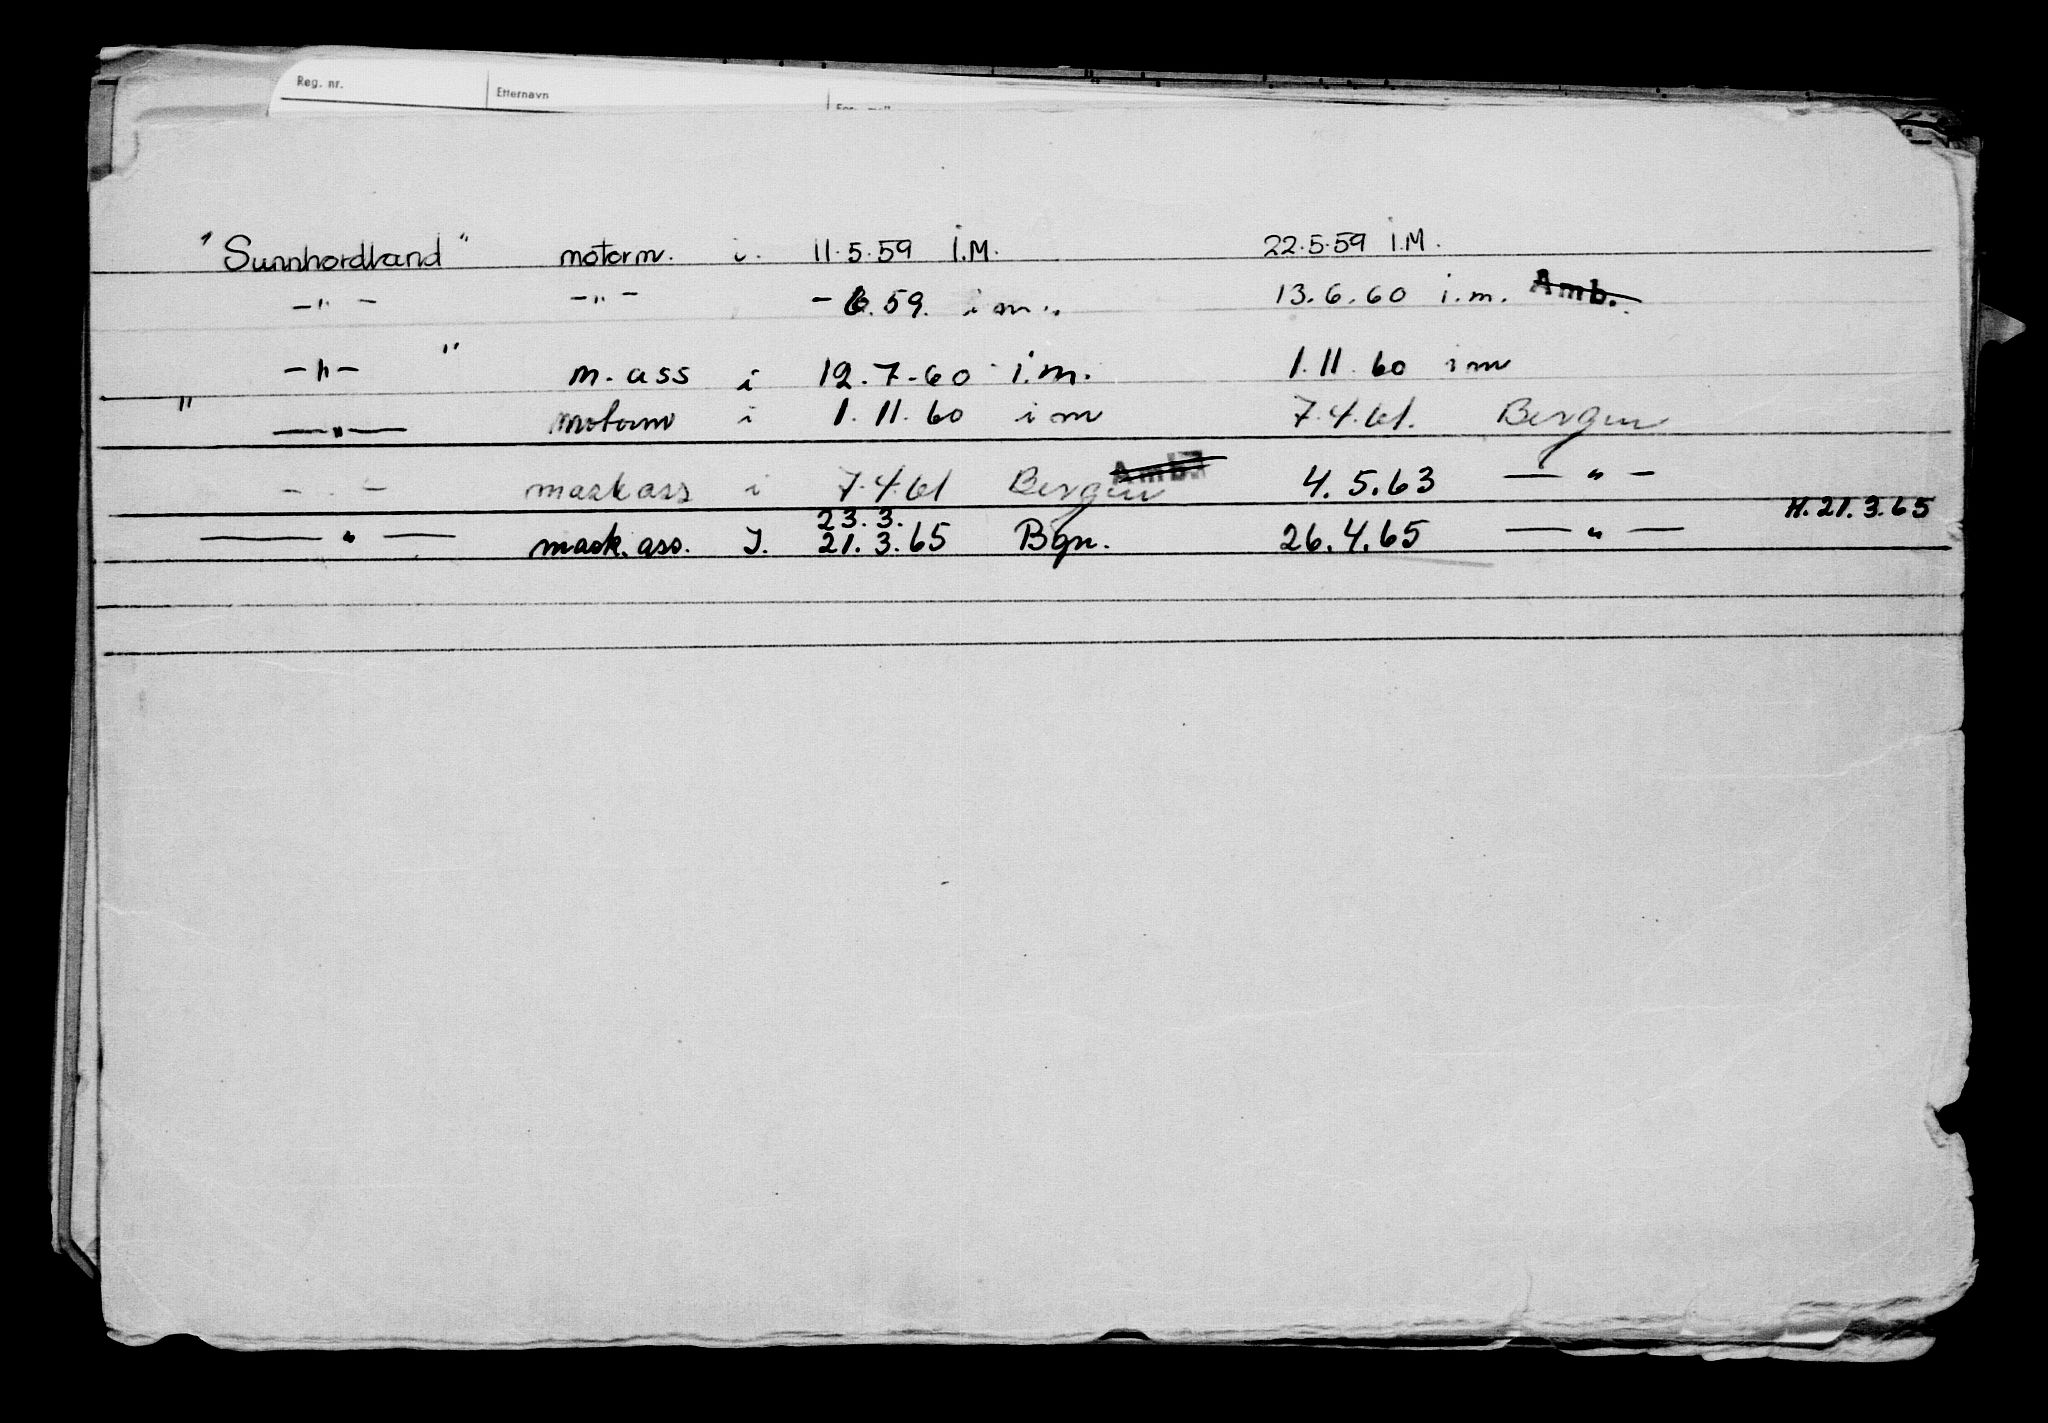 Reg. nr. Etternavn
"Sunnhordland" motorm. i. 11.5.59 I.M. 22.5.59 I.M.
-"- -"- - 6.59. i m.. 13.6.60 i.m. Amb.
-"- " m. ass i 12.7-60 i.m. 1.11.60 i m
" -"- motorm i 1.11.60 i m 7.4.61. Bergen
- . - maskass i 7.4.61 Bergen Amb. 4.5.63 -"-
23.3. H.21.3.65
-"- mask.ass. I. 21.3.65 Bgn. 26.4.65 -"-